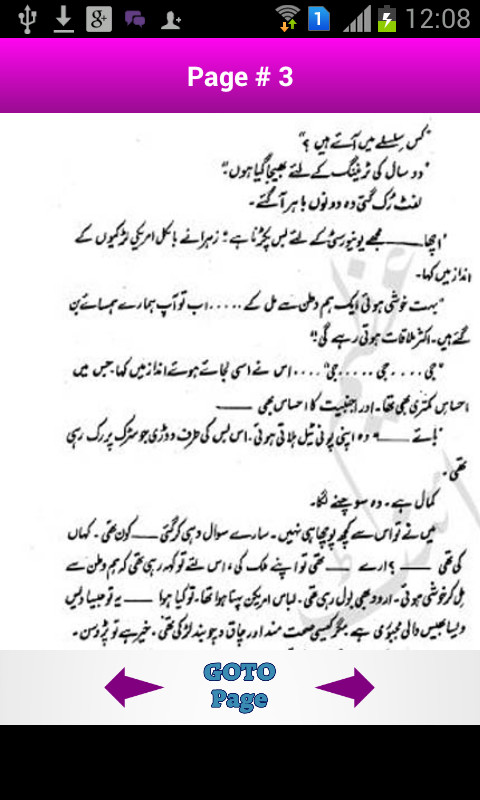 12:08
Page # 3
"کس سلسلے میں آئے ہیں ؟"
"دو سال کی ٹریننگ کے لئے بھیجا گیا ہوں۔"
لفٹ رُک گئی وہ دونوں باہر آ گئے۔
"اچھا ـــــ مجھے یونیورسٹی کے لئے بس پکڑنا ہے" زہرا نے بالکل امریکی لڑکیوں کے
انداز میں کہا۔
"بہت خوشی ہوئی ایک ہم وطن سے مل کے ..... اب تو آپ ہمارے ہمسائے بن
گئے ہیں۔ اکثر ملاقات ہوتی رہے گی!"
"جی .... جی ..... جی" .... اس نے اسی لجائے ہوئے انداز میں کہا جس میں
احساسِ کمتری بھی تھا۔ اور اجنبیت کا احساس بھی ـــــ
"بائے ـــــ" وہ اپنی پونی ٹیل ہلاتی ہوئی۔ اس بس کی طرف دوڑی جو سڑک پر رک رہی
تھی۔
کمال ہے۔ وہ سوچنے لگا۔
میں نے تو اس سے کچھ پوچھا ہی نہیں۔ سارے سوال وہی کر گئی ـــــ کون تھی۔ کہاں
کی تھی ـــــ ؟ ارے ـــــ تھی تو اپنے ملک کی، اس لئے تو کہہ رہی تھی کہ ہم وطن سے
مل کر خوشی ہوئی۔ اردو بھی بول رہی تھی۔ لباس امریکن پہنا ہوا تھا۔ تو کیا ہوا ـــــ یہ تو جیسا دیس
ویسا بھیس والی مجبوری ہے مگر کیسی صحت مند اور چاق و چوبند لڑکی تھی۔ خیر ہے تو پڑوسن۔
GOTO
Page